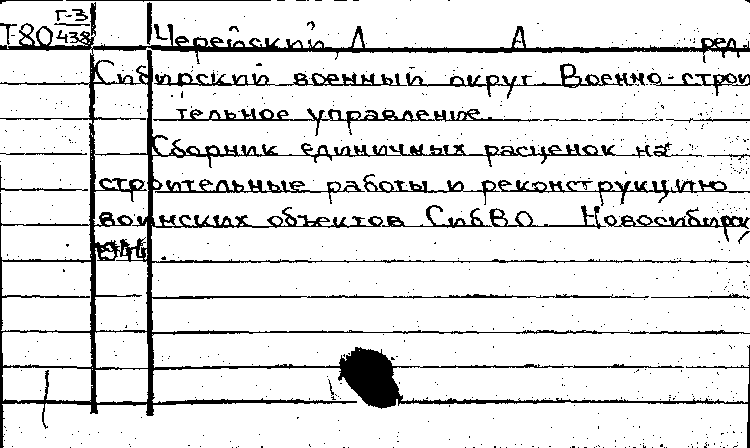 Г-3
Т80 438
Черейский, Л А ред.
Сибирский военный округ. Военно-строи
тельное управление.
Сборник единичных расценок на
строительные работы и реконструкцию
воинских объектов СибВО. Новосибирск,
1944.